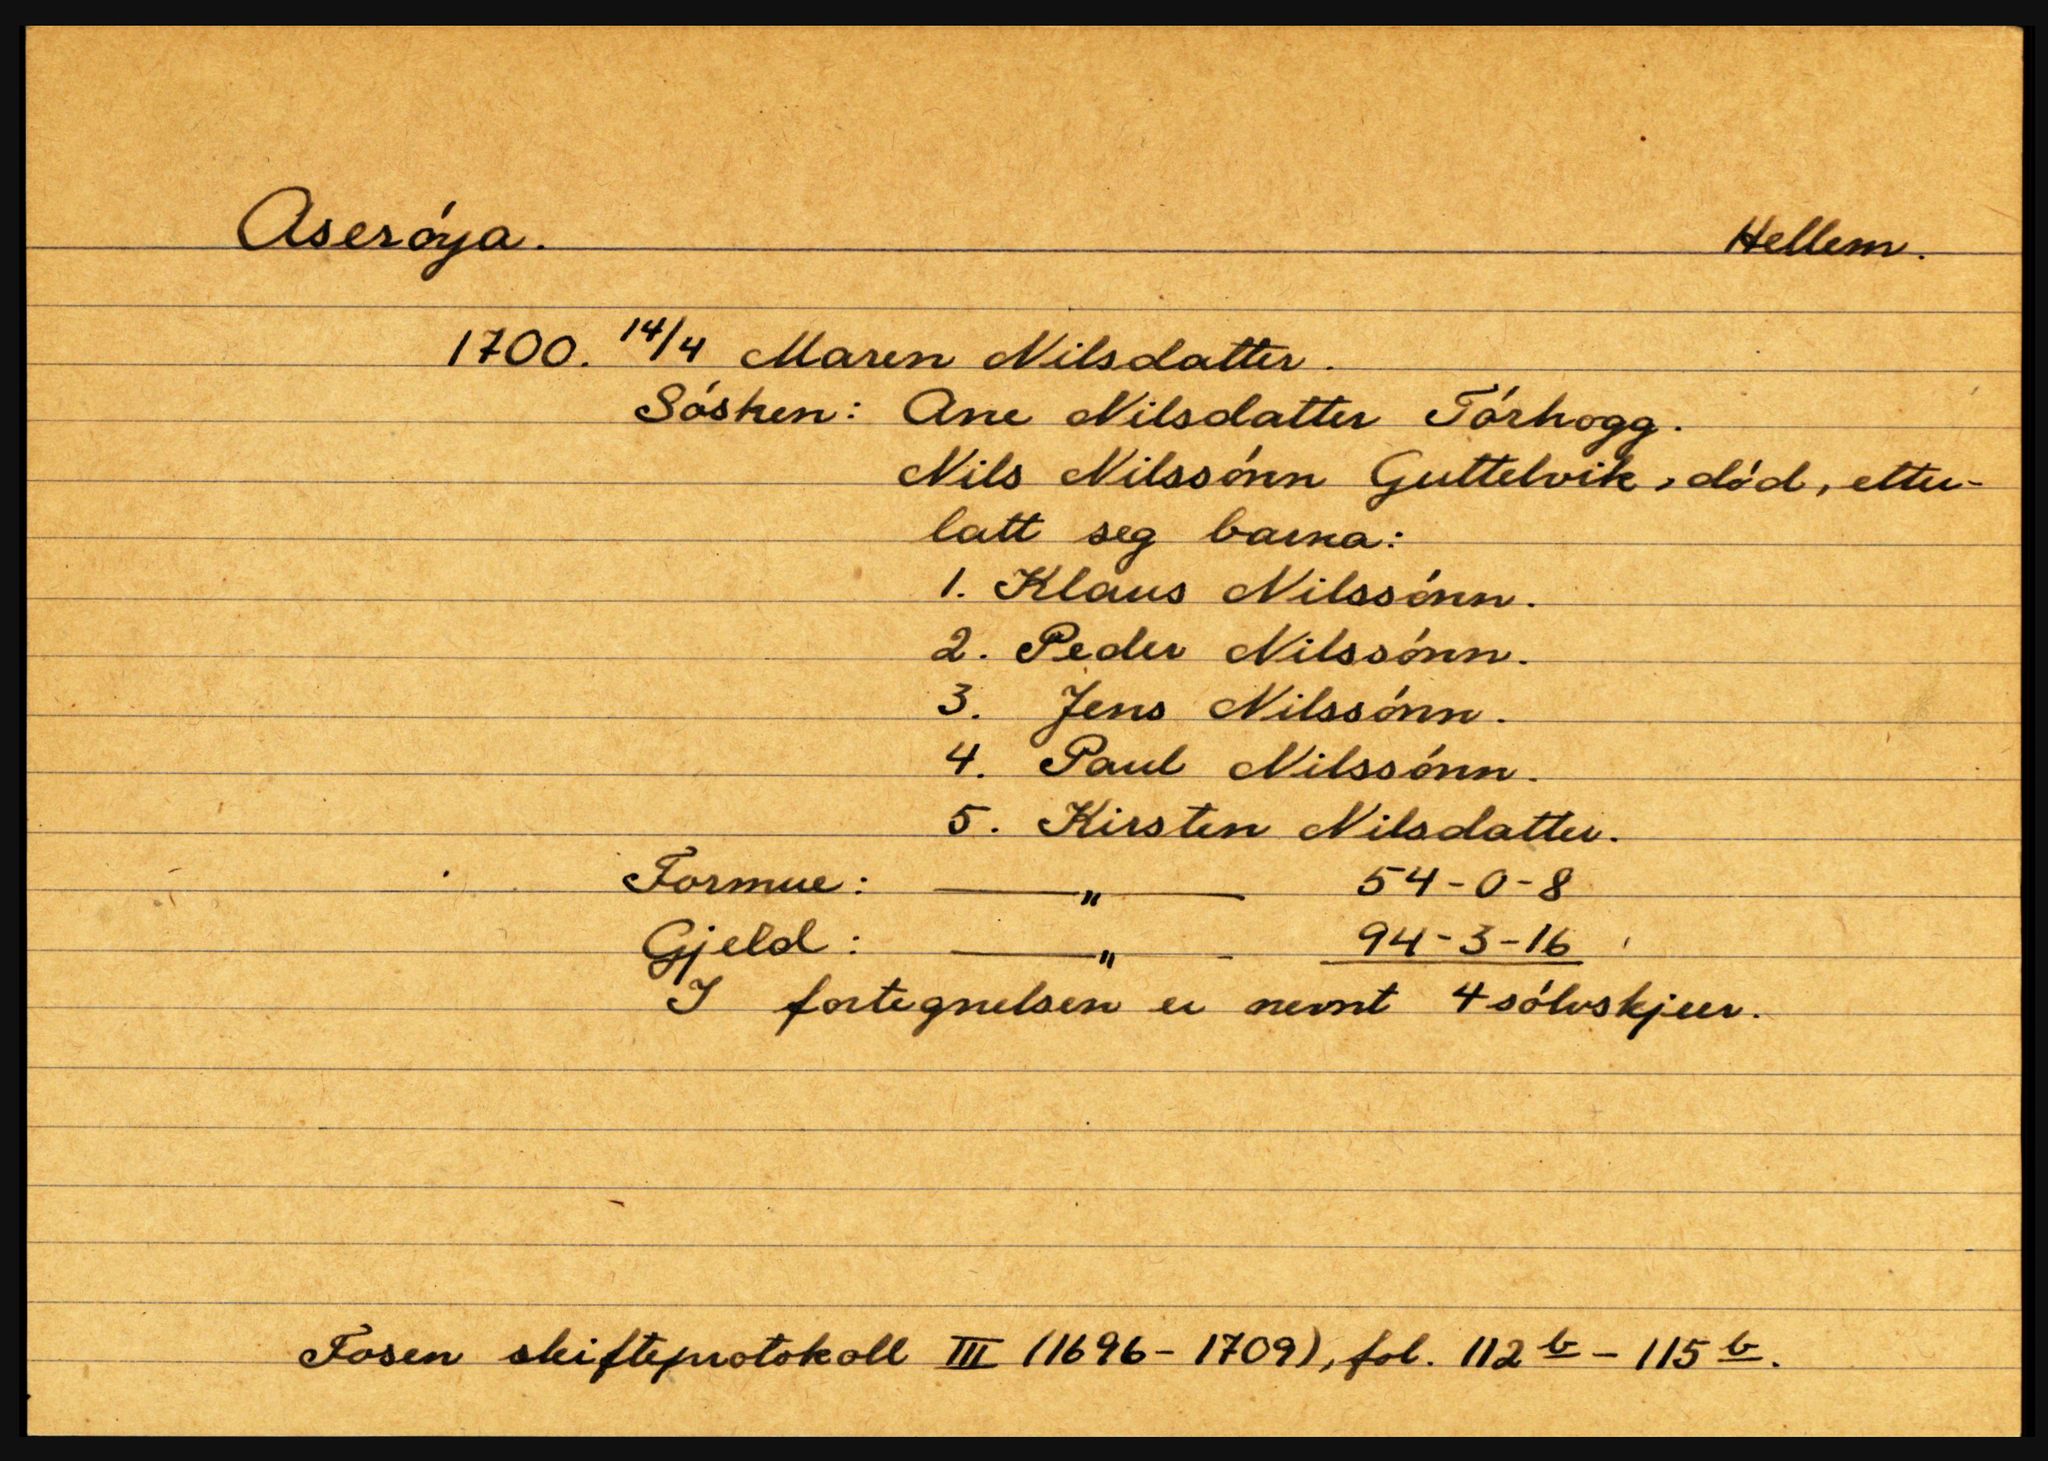 Aserøya. Hellem.
1700. 14/4 Maren Nilsdatter.
Søsken: Ane Nilsdatter Tørhogg.
Nils Nilssønn Guttelvik, død, etter-
latt seg barna:
1. Klaus Nilssønn.
2. Peder Nilssønn.
3. Jens Nilssønn.
4. Paul Nilssønn.
5. Kirsten Nilsdatter.
Formue: —"— 54-0-8
Gjeld: —"— 94-3-16
I fortegnelsen er nevnt 4 sølvskjeer.
Fosen skifteprotokoll III (1696-1709), fol. 112 b - 115 b.